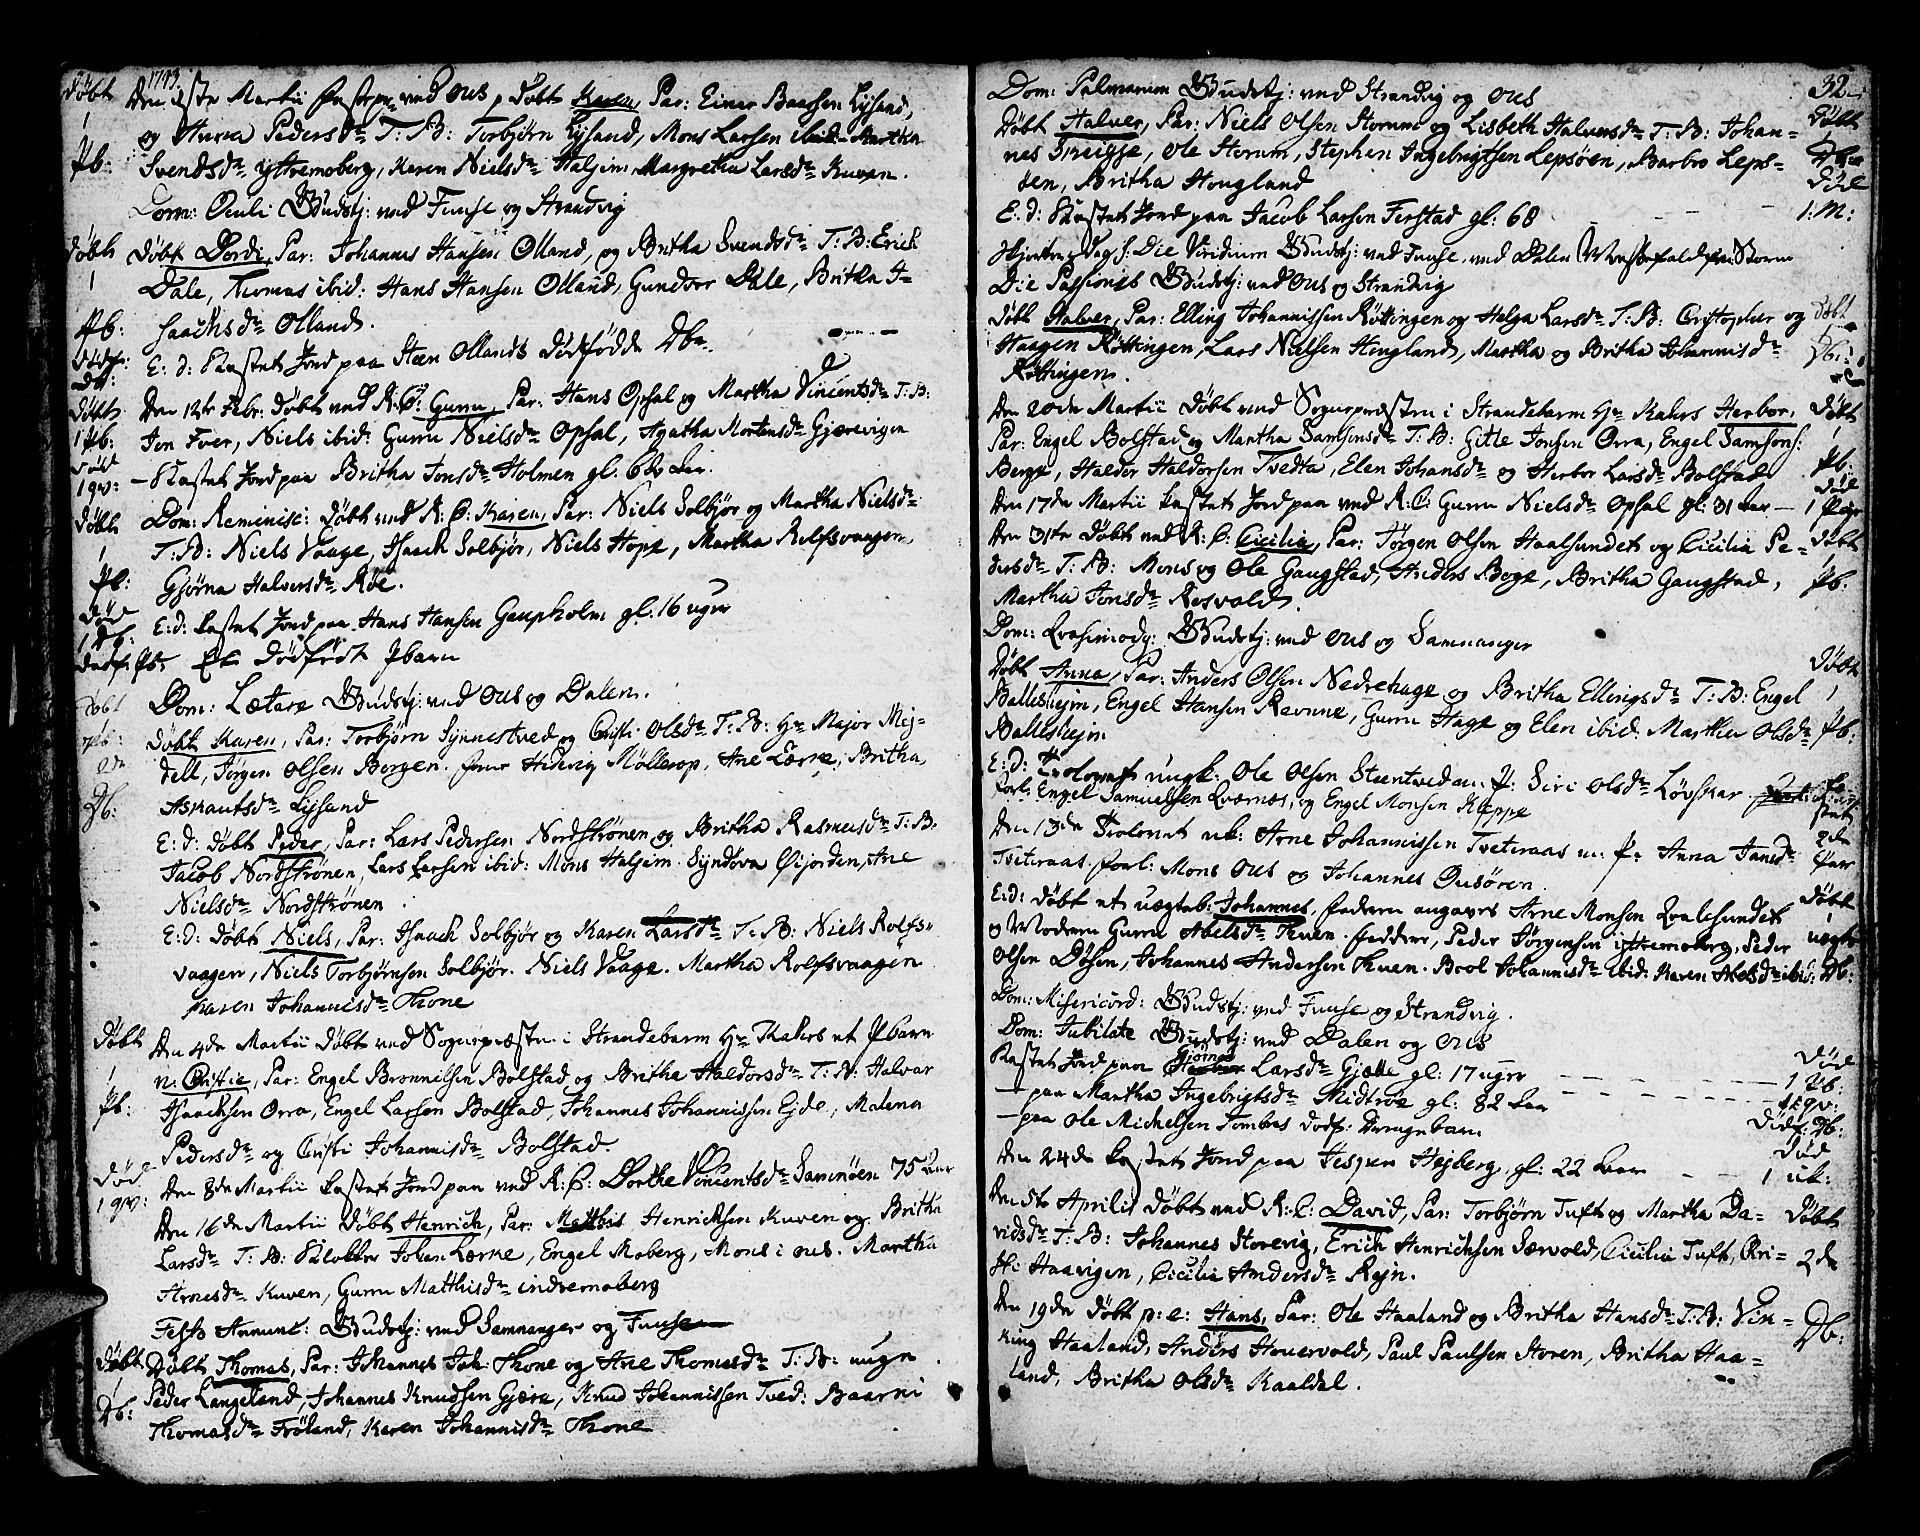 1793
Døbt Den 1ste Martii ved Ous, Døbt Karen, Par: Einar Baarsen Lysand,
1 og Anna Pedersdr T: B: Torbjørn Lysand, Mons Larsen ibid Martha
Pb: Svendsdr Yttremoberg, Karen Nielsdr Haljem, Margretha Larsdr Kuven.
Dom: Oculi Gudstj: ved Fuuse og Strandvig
Døbt Døbt Dordi, Par: Johannes Hansen Olland, og Britha Svendsdr T: B: Erich
1 Dale, Thomas ibid: Hans Hansen Olland, Gundvor Dale, Britha I-
Pb: saachsdr Olland.
Dødf: E: d: Kastet Jord paa Steen Ollands dødfødde Db.
Døbt Den 12te Febr: Døbt ved R: C: Guru, Par: Hans Opsal og Martha Vincentsdr T: B:
1 Pb: Jon Tver, Niels ibid: Guru Nielsdr Opsal, Agatha Mortensdr Gjærevigen
Død
1 qv: — Kastet Jord paa Britha Jonsdr Holmen gl: 61 aar.
Døbt Dom: Reminisc: Døbt ved R: C: Karen, Par: Niels Solbjør og Martha Nielsdr
1 T: B: Niels Vaage, Isaach Solbjør, Niels Hope, Martha Rolfsvaagen,
Pb: Gjøra Halversdr Røe.
Død E: d: Kastet Jord paa Hans Hansen Gaupholm gl: 16 uger
1 Db:
Dødf: Pb: Et Dødfødt Pbarn
Døbt Dom: Lætare Gudstj: ved Ous og Dalen.
Pb: Døbt Karen, Par: Torbjørn Synnestved og Christi Olsdr T: B: Hr Major Mej-
2de dell, Jørgen Olsen Borgen. Hedevig Møllerop, Ane Lærke, Britha
Db: Askautsdr Lysand
E: d: Døbt Peder, Par: Lars Pedersen Nordstrønen og Britha Rasmusdr T: B:
Jacob Nordstrønen, Lars Larsen ibid: Mons Haljem. Syndøva Øijorden, Ane
Nielsdr Nordstrønen.
E: d: Døbt Niels, Par: Isaach Solbjør og Karen Larsdr T: B: Niels Rolfs-
vaagen, Niels Torbjørnsen Solbjør. Niels Vaage. Martha Rolfsvaagen
Karen Johannisdr Thone
Døbt Den 4de Martii Døbt ved Sognepræsten i Strandebarm Hr Kahrs et Pbarn
1 n: Christie, Par: Engel Brønnilsen Bolstad og Britha Haldorsdr T: B: Halvar
Pb: Isaachsen Orra, Engel Larsen Bolstad, Johannes Johannissen Ejde, Malena
Pedersdr og Christi Johannisdr Bolstad.
Død
1 qv: Den 8de Martii Kastet Jord paa ved R: C: Dorthe Vincentsdr Samnøen 75 aar
Den 16de Martii Døbt Henrich, Par: Mathis Henrichsen Kuven og Britha
Larsdr T: B: Klokker Johan Lærke, Engel Moberg, Mons i Ous. Martha
Arnesdr Kuven, Guru Mathisdr indremoberg
Festo Annunt: Gudstj: ved Samnanger og Fuuse
Døbt Døbt Thomas, Par: Johannes Joh: Thone og Ane Thomasdr T: B: ungk
1 Peder Langeland, Johannes Knudsen Gjære, Knud Johannissen Tved: Baarni
Db: Thomasdr Frøland, Karen Johannisdr Thone
32
Dom: Palmarum Gudstj: ved Strandvig og Ous
Døbt Halver, Par: Niels Olsen Storum og Lisbeth Halversdr T: B: Johan- Døbt
nes Skeigje, Ole Storum, Stephen Ingebrigtsen Lepsøen, Barbro Leps-
øen, Britha Hougland Død
E: d: Kastet Jord paa Jacob Larsen Ferstad gl: 68 1 M:
Die Viridium Gudstj: ved Fuuse, ved Dalen Storm
Die Passionis Gudstj: ved Ous og Strandvig
Døbt Halver, Par: Elling Johannissen Røttingen og Helga Larsdr T: B: Christopher og Døbt
Haagen Røttingen, Lars Nielsen Hougland, Martha og Britha Johannisdr Db:
Røttingen.
Den 20de Martii Døbt ved Sognepræsten i Strandebarm Hr Kahrs Herbor, Døbt
Par: Engel Bolstad og Martha Samsonsdr T: B: Gitle Jonsen Orra, Engel Samsons: 1
Berge, Haldor Haldorsen Tvedta, Elen Johansdr og Herbor Larsdr Bolstad Pb:
Den 17de Martii Kastet Jord paa ved R: C: Guru Nielsdr Opsal gl: 31 aar — Død 1
Den 31te Døbt ved R: C: Cicilia, Par: Jørgen Olsen Haalsundet og Cicilia Pe- Døbt
dersdr T: B: Mons og Ole Gaugstad, Anders Boge, Britha Gaugstad, 1 Pb:
Martha Jonsdr Røsvold.
Dom: Qvasimodog: Gudstj: ved Ous og Samnanger
Døbt Anna, Par: Anders Olsen Nedrehage og Britha Ellingsdr T: B: Engel Døbt 1
Ballishejm, Engel Hansen Ravnne, Guru Hage og Elen ibid: Martha Olsdr Pb:
Ballishejm
E: d: Trolovet ungk: Ole Olsen Steentved m: P: Siri Olsdr Løvskar
Forl: Engel Samuelsen Qværnes, og Engel Monsen Kleppe
Den 13de Trolovet uk: Arne Johannissen Tveteraas m: P: Anna Jansdr 2de
Tveteraas. Forl: Mons Ous og Johannes Ousøren. Par
E: d: Døbt et uægte b: Johannes, Faderen angaves Arne Monsen Qvalesundet Døbt
og Moderen Guru Abelsdr Thuen. Faddere, Peder Jørgensen Yttremoberg, Peder uægte
Olsen Døsen, Johannes Andersen Thuen. Boel Johannisdr ibid: Karen Abelsdr ibid: Db:
Dom: Misericord: Gudstj: ved Fuuse og Strandvig.
Dom: Jubilate Gudstj: ved Dalen og Ous
Kastet Jord paa Gjøren Larsdr Gjætle gl: 17 uger Død 1 Pb:
— paa Martha Ingebrigtsdr Midtrøe gl: 82 aar 1 qv:
— paa Ole Michelsen Tombres dødf: Drengebarn Dødf: Db:
Den 24de Kastet Jord paa Jespen Hejberg, gl: 22 aar Død 1 uk:
Den 5te Aprilis Døbt ved R: C: David, Par: Torbjørn Tuft og Martha Da- Døbt
vidsdr T: B: Johannes Storevig, Erich Henrichsen Særvold, Cicilia Tuft, Chri- 2de
sti Haavigen, Cicilia Andersdr Rejn.
Den 19de Døbt p: e: Hans, Par: Ole Haaland og Britha Hansdr T: B: Vin- Db:
king Haaland, Anders Houervold, Paul Paulsen Storen, Britha Haa-
land, Britha Olsdr Kaaldal.